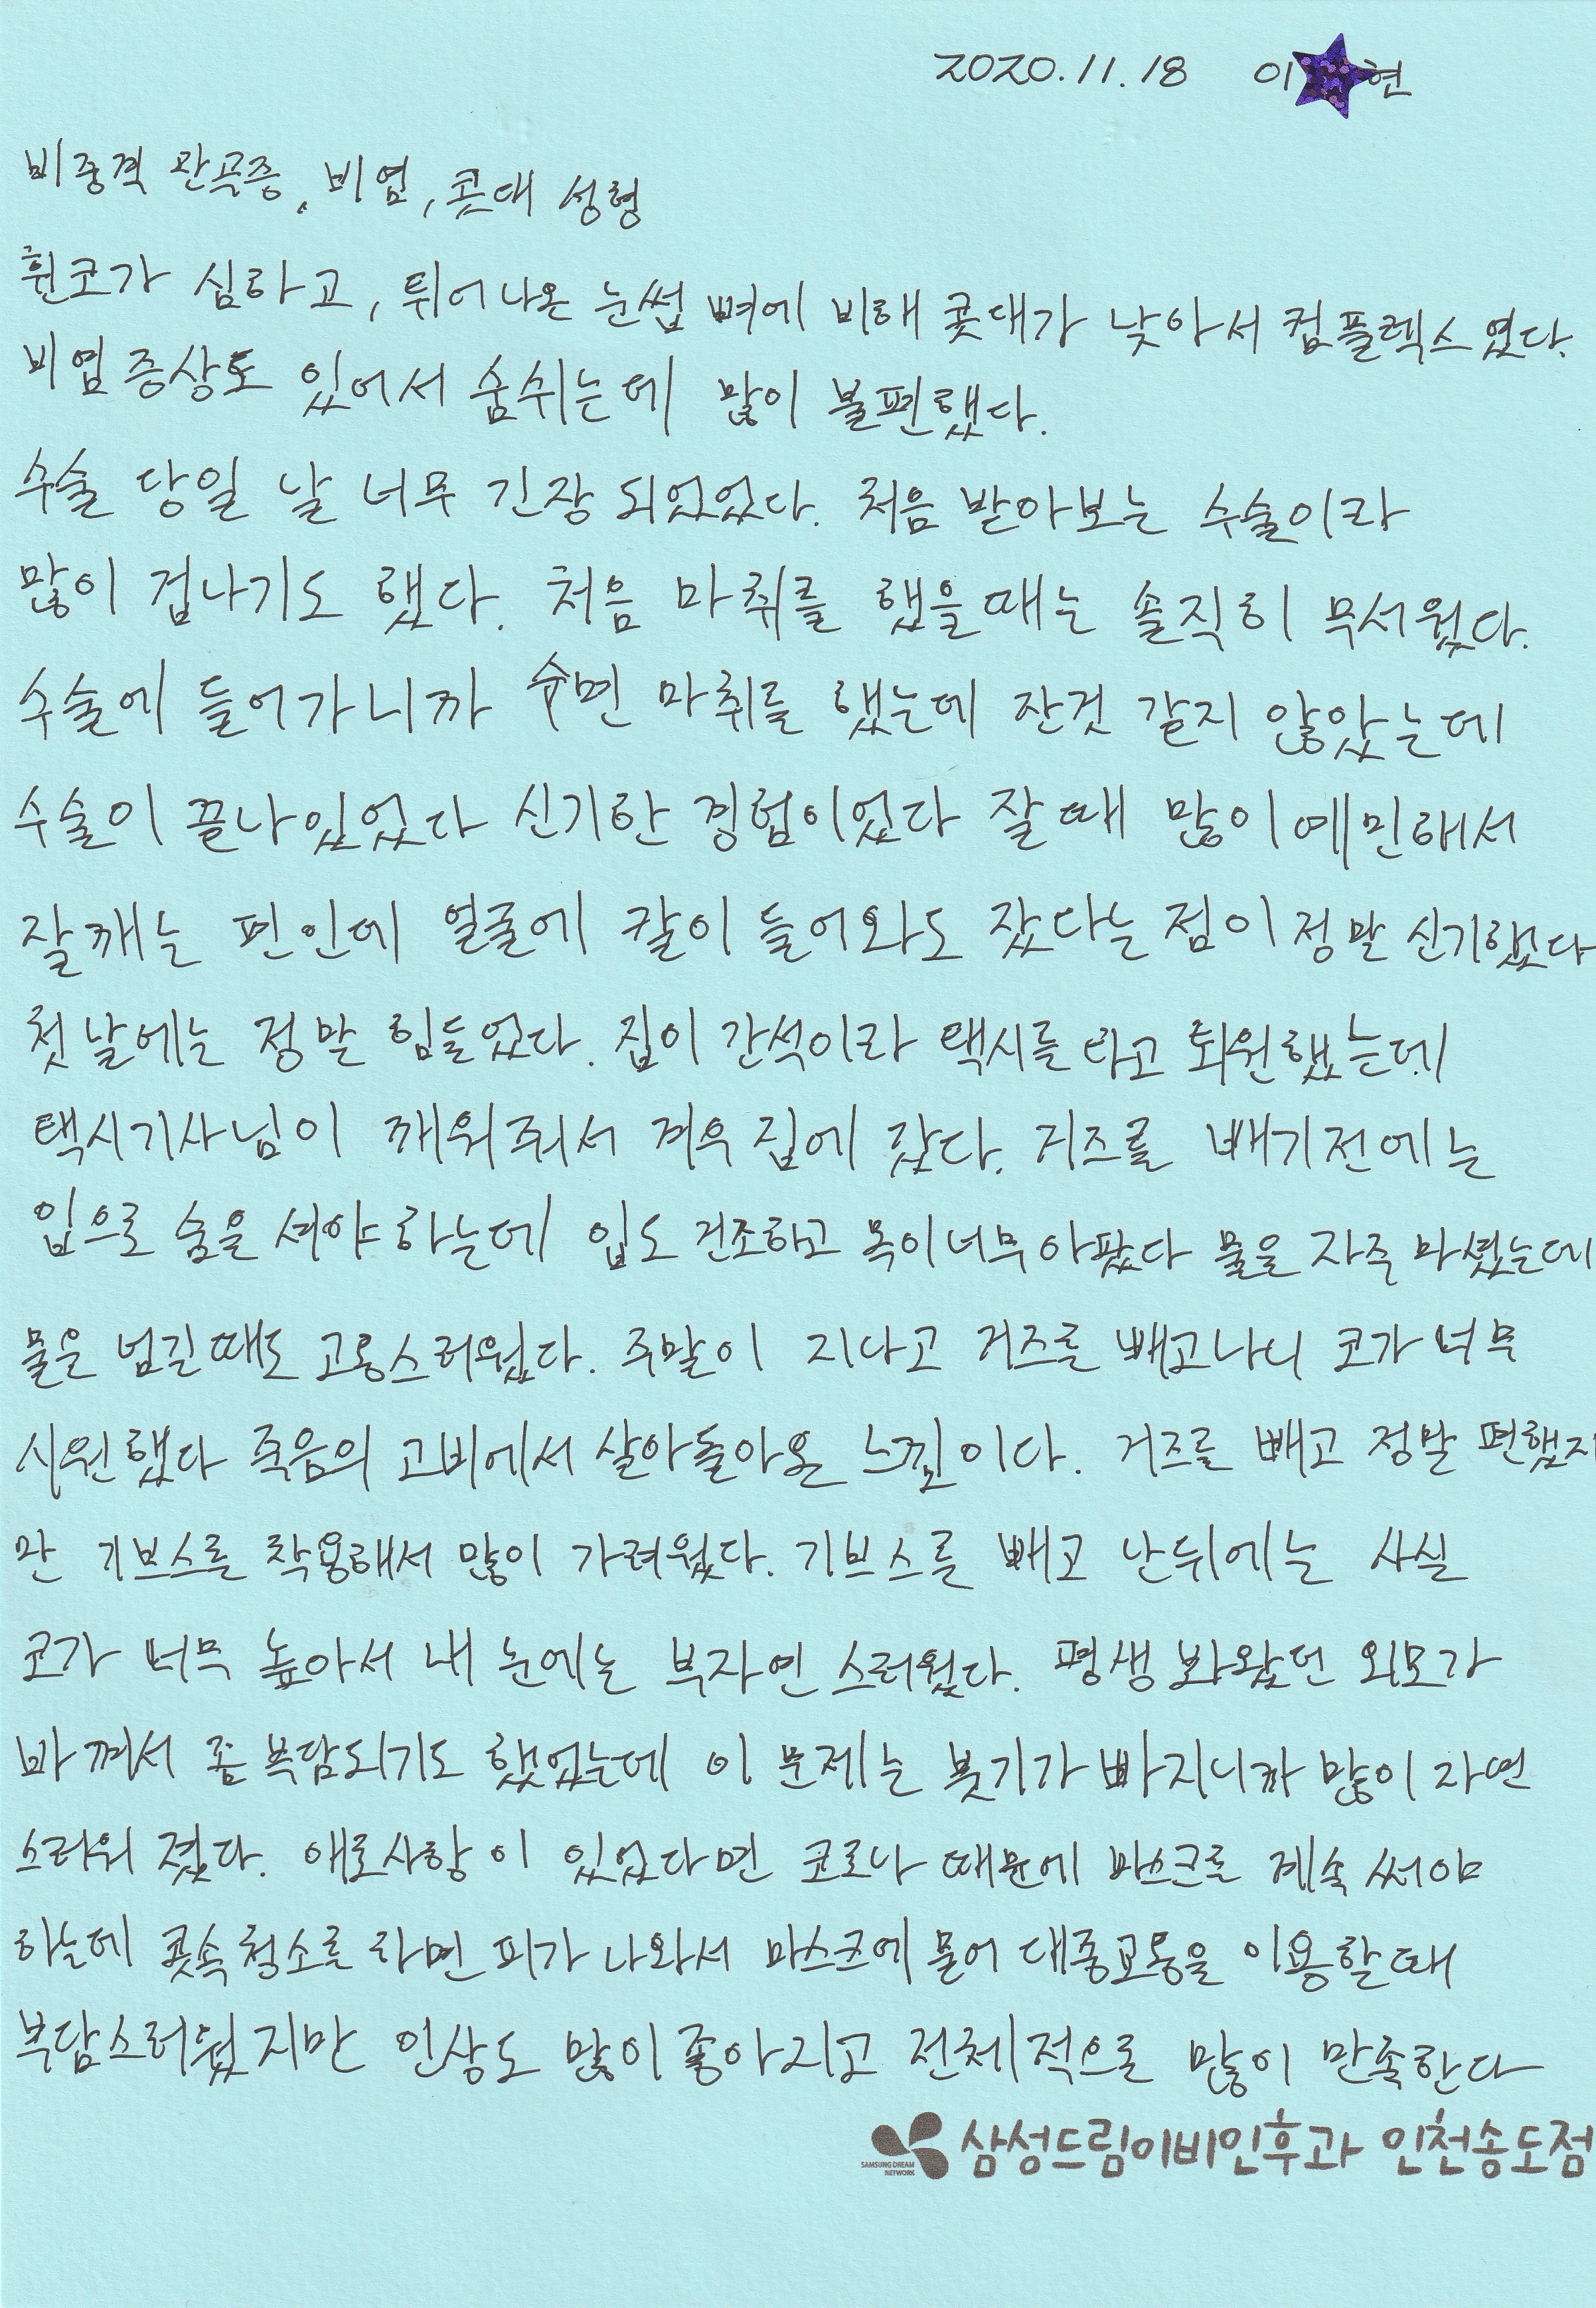 2020.11.18 이 현
비중격 만곡증, 비염, 콧대 성형
휜코가 심하고, 튀어나온 눈썹 뼈에 비해 콧대가 낮아서 컴플렉스였다.
비염증상도 있어서 숨쉬는데 많이 불편했다.
수술 당일 날 너무 긴장 되었었다. 처음 받아보는 수술이라
많이 겁나기도 했다. 처음 마취를 했을때는 솔직히 무서웠다.
수술에 들어가니까 수면 마취를 했는데 잔것 같지 않았는데
수술이 끝나있었다 신기한 경험이었다 잘때 많이 예민해서
잘깨는 편인데 얼굴에 칼이 들어와도 잤다는 점이 정말 신기했다
첫날에는 정말 힘들었다. 집이 간석이라 택시를 타고 퇴원했는데
택시기사님이 깨워줘서 겨우 집에 갔다. 거즈를 빼기전에는
입으로 숨을 셔야하는데 입도 건조하고 목이너무아팠다 물을 자주 마셨는데
물을 넘길때도 고통스러웠다. 주말이 지나고 거즈를 빼고나니 코가 너무
시원했다 죽음의 고비에서 살아돌아온 느낌이다. 거즈를 빼고 정말 편했지
만 기브스를 착용해서 많이 가려웠다. 기브스를 빼고 난뒤에는 사실
코가 너무 높아서 내 눈에는 부자연스러웠다. 평생 봐왔던 외모가
바껴서 좀 부담되기도 했었는데 이 문제는 붓기가 빠지니까 많이 자연
스러워 졌다. 애로사항이 있었다면 코로나 때문에 마스크를 계속 써야
하는데 콧속청소를 하면 피가 나와서 마스크에 물어 대중교통을 이용할때
부담스러웠지만 인상도 많이좋아지고 전체적으로 많이 만족한다
SAMSUNG DREAM NETWORK 삼성드림이비인후과 인천송도점